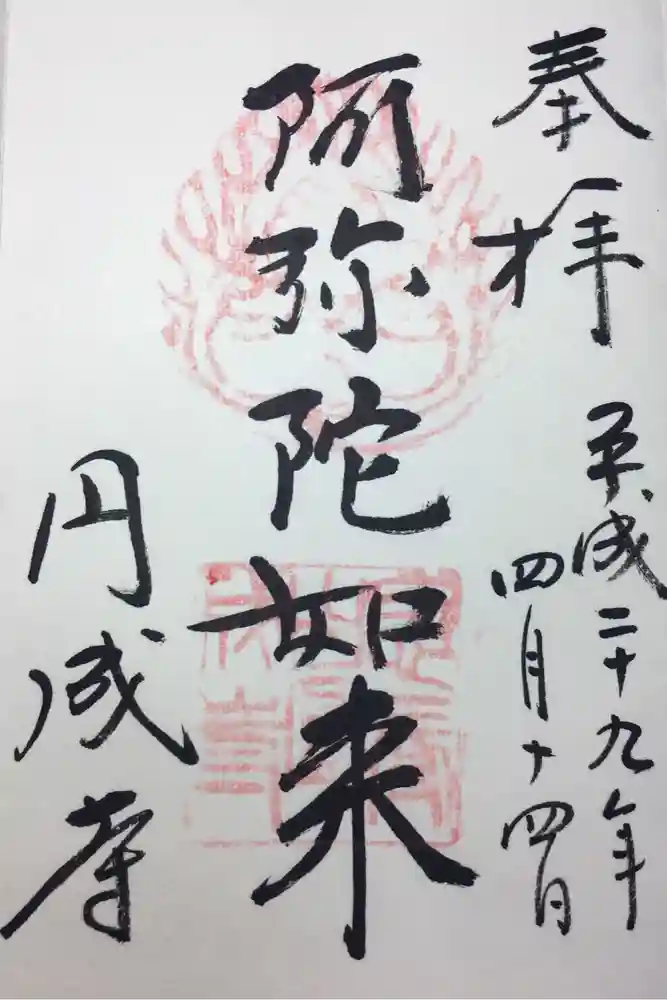 奉拝
平成二十九年
四月十四日
阿弥陀如来
円成寺